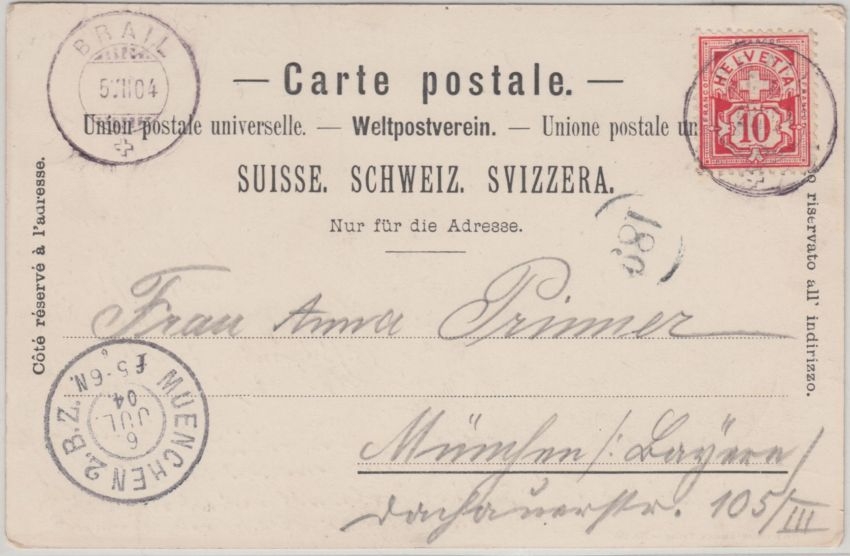 BRAIL
5.VII04
— Carte postale. —
Union postale universelle. — Weltpostverein. — Unione postale un
SUISSE. SCHWEIZ. SVIZZERA.
Nur für die Adresse.
HELVETIA
FRANCO
10
Côté réservé à l'adresse.
riservato all' indirizzo.
189
Frau Anna Prinner
MUENCHEN 2. B.Z.
6.
JUL.
04
5-6N.
München /: Bayern /
Dachauerstr. 105/III